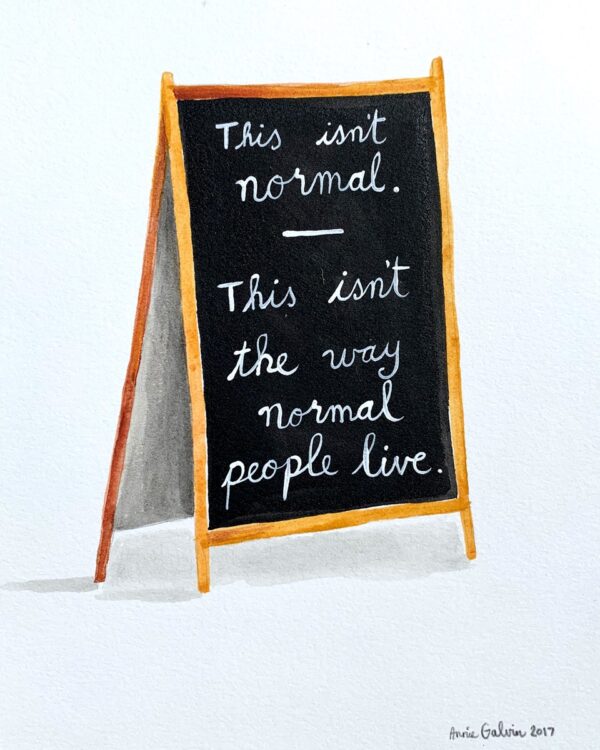 This isn't
normal.
—
This isn't
the way
normal
people live.
Annie Galvin 2017